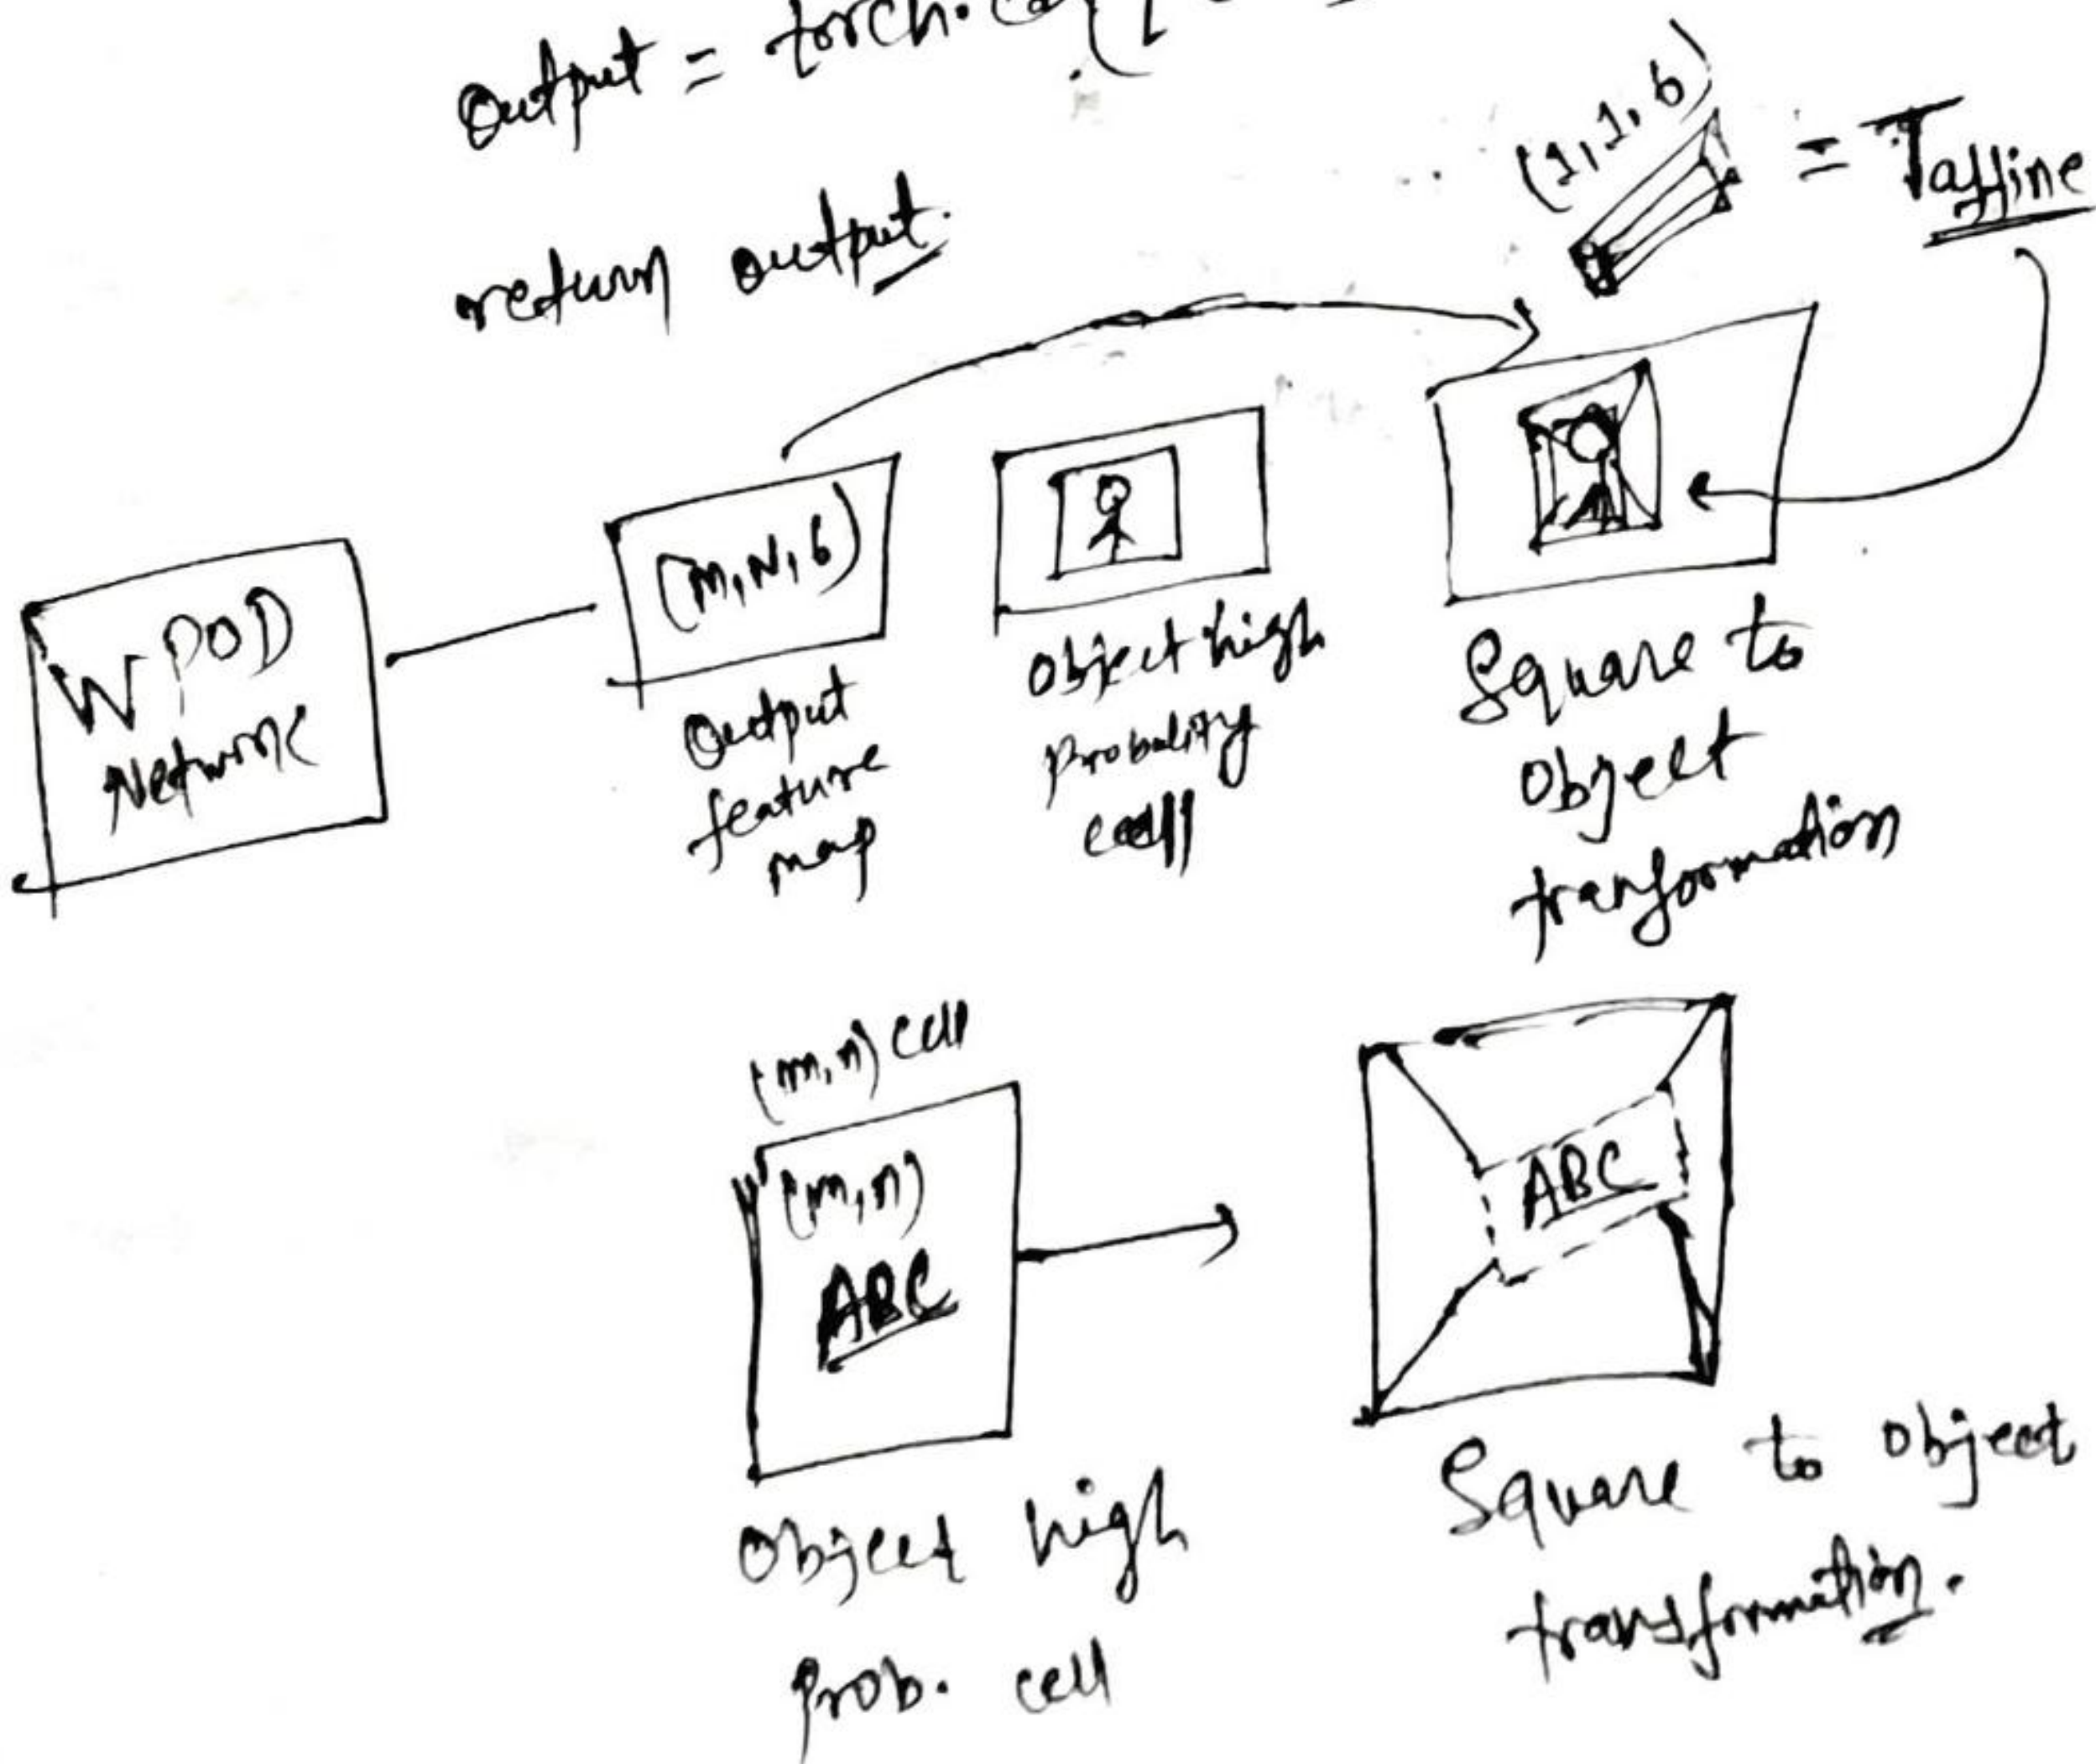 Output = torch.
return output.
(1,1,6) = Taffine
WPOD
Network
(M,N,6)
Output
feature
map
Object high
Probality
cell
Square to
Object
tranformation
(m,n) cell
(m,n)
ABC
Object high
Prob. cell
ABC
Square to Object
transformation.